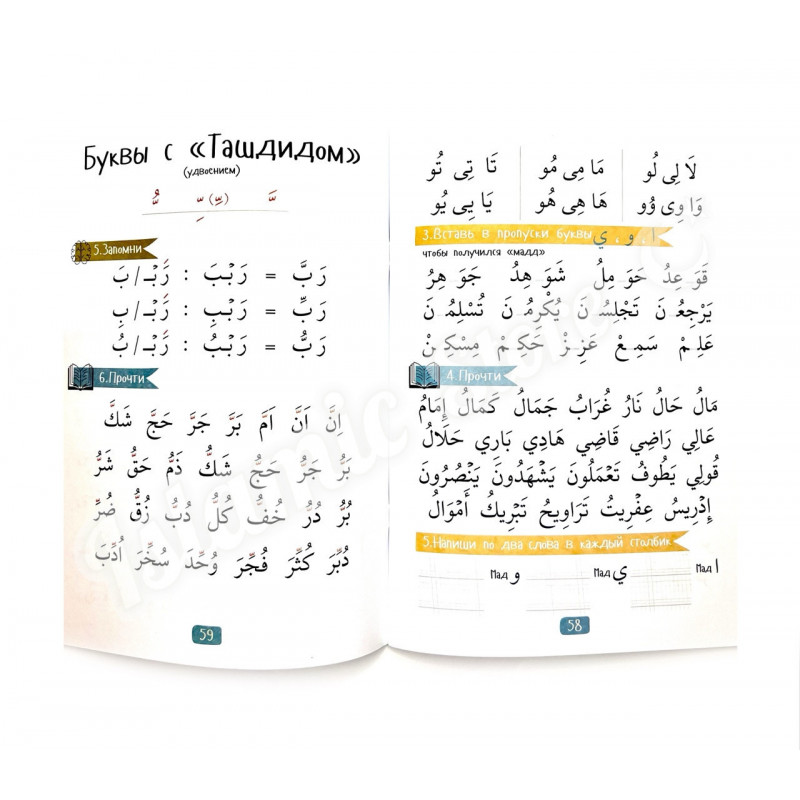 لَا لِى لُو   مَا مِى مُو   تَا تِى تُو
وَا وِى وُو   هَا هِى هُو   يَا يِى يُو
3.Вставь в пропуски буквы ا . و . ي
чтобы получился «мадд»
قَوَ عِدُ حَوَ مِلُ شَوَ هِدُ جَوَ هِرُ
يَرْجِعُ نَ تَجْلِسُ نَ يُكْرِمُ نَ تُسْلِمُ نَ
عَلِمْ سَمِعْ عَزِزْ حَكِمْ مِسْكِنْ
4.Прочти
مَالُ حَالُ نَارُ غُرَابُ جَمَالُ كَمَالُ إِمَامُ
عَالِي رَاضِي قَاضِي هَادِي بَارِي حَلَالُ
قُولِي يَطُوفُ تَعْمَلُونَ يَشْهَدُونَ يَنْصُرُونَ
إِدْرِيسُ عِفْرِيتُ تَرَاوِيحُ تَبْرِيكُ أَمْوَالُ
5.Напиши по два слова в каждый столбик
Мад ا   Мад ي   Мад و
58
Буквы с «Ташдидом»
(удвоением)
ـَّ ـِّ (ـِّ) ـُّ
5.Запомни
رَبَّ = رَبْبَ : رَّبـَ/بَ
رَبِّ = رَبْبِ : رَّبـِ/بِ
رَبُّ = رَبْبُ : رَّبـُ/بُ
6.Прочти
اِنَّ اَنَّ اَمَّ بَرَّ جَرَّ حَجَّ شَكَّ
بَرُّ جَرُّ حَجُّ شَكُّ ذَمُّ حَقُّ شَرُّ
بُرُّ دُرُّ خُفُّ كُلُّ دُبُّ زُقُّ ضُرِّ
دُبِّرَ كُثِّرَ فُجِّرَ وُحِّدَ سُخِّرَ اُدِّبَ
59
Islamic Store